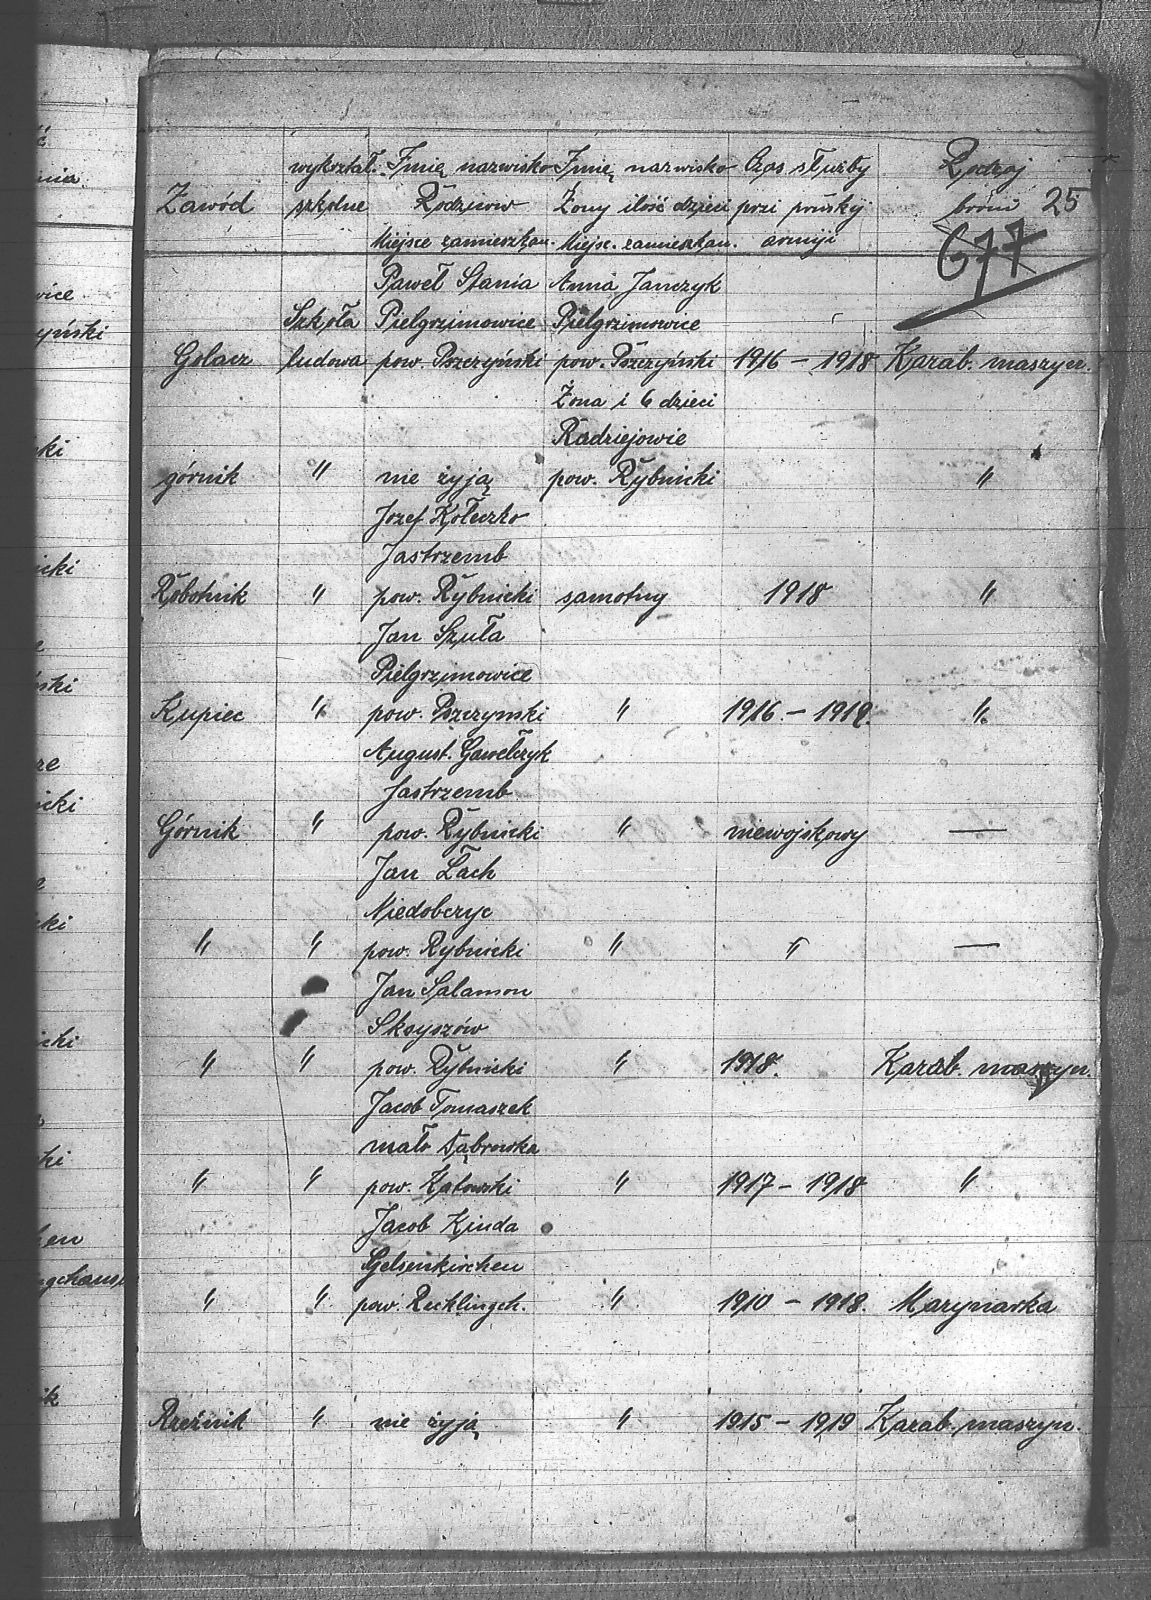 wykształ. Imię nazwisko Imię nazwisko Czas służby Rodzaj
Zawód szkolne Rodziców Żony ilość dzieci przi pruskij broni 25
Miejsce zamieszkan. Miejsc. zamieszkan. armiji 677
Paweł Stania Anna Janczyk
Szkoła Pielgrzimowice Pielgrzimowice
Golacz ludowa pow. Pszczyński pow. Pszczyński 1916 – 1918 Karab. maszyn.
Żona i 6 dzieci
Radziejowie
górnik " nie żyją pow. Rybnicki "
Jozef Kołeczko
Jastrzemb
Robotnik " pow. Rybnicki samotny 1918 "
Jan Szuła
Pielgrzimowice
Kupiec " pow. Pszczynski " 1916. – 1919. "
August. Gawełczyk
Jastrzemb
Górnik " pow. Rybnicki " niewojskowy —
Jan Łach
Niedobczyc
" " pow. Rybnicki " " —
Jan Salamon
Skryszów
" " pow. Rybnicki " 1918. Karab. maszyn.
Jacob Tomaszek
mało Dąbrowka
" " pow. Katowski " 1917 – 1918 "
Jacob Kinda
Gelsenkirchen
" " pow. Recklingch. " 1910 – 1918. Marynarka
Rzeźnik " nie żyją " 1915 – 1919 Karab. maszyn.